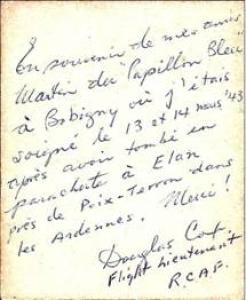 En souvenir de mes amis
Martin du "Papillon Bleu"
à Bobigny où j'étais
soigné le 13 et 14 mars '43
après avoir tombé en
parachute à Elan
près de Poix-Terron dans
les Ardennes. Merci!
Douglas
Flight Lieutenant
R.C.A.F.